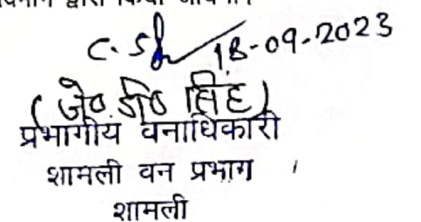 द्वारा किया
18-09-2023
(जे० डी० सिंह)
प्रभागीय वनाधिकारी
शामली वन प्रभाग
शामली